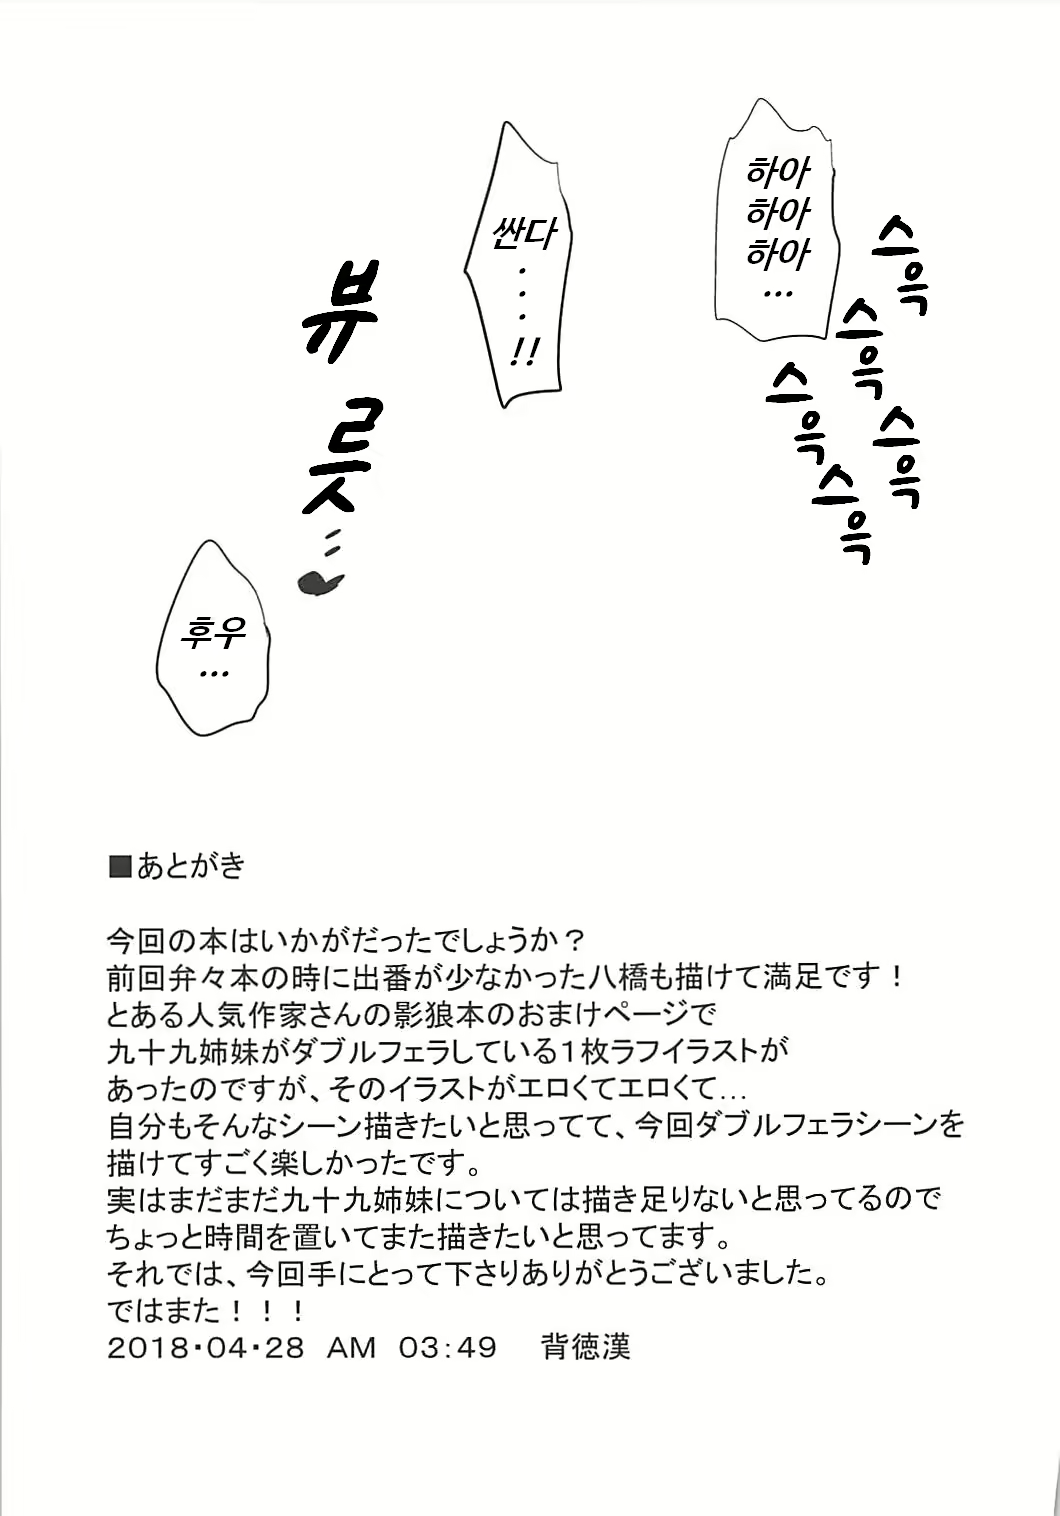 하아
하아
하아
...
스윽
스윽
스윽
스윽
스윽
싼다
...
!!
뷰
릇
후우
...
■あとがき
今回の本はいかがだったでしょうか？
前回弁々本の時に出番が少なかった八橋も描けて満足です！
とある人気作家さんの影狼本のおまけページで
九十九姉妹がダブルフェラしている１枚ラフイラストが
あったのですが、そのイラストがエロくてエロくて…
自分もそんなシーン描きたいと思ってて、今回ダブルフェラシーンを
描けてすごく楽しかったです。
実はまだまだ九十九姉妹については描き足りないと思ってるので
ちょっと時間を置いてまた描きたいと思ってます。
それでは、今回手にとって下さりありがとうございました。
ではまた！！！
２０１８・０４・２８　ＡＭ　０３：４９　背徳漢